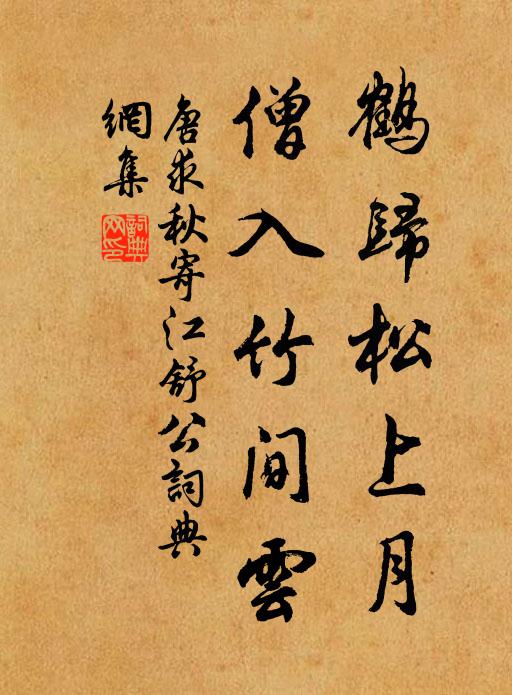 鶴歸松上月
僧入竹間雲
唐求秋寄江舒公詞典
網集
詞典
网印